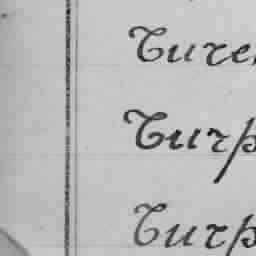 Ture
Turp
Turp